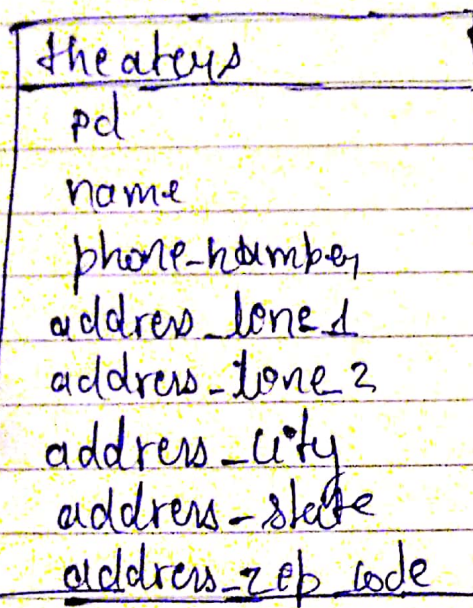 theaters
id
name
phone_number
address_line1
address_line2
address_city
address_state
address_zip_code